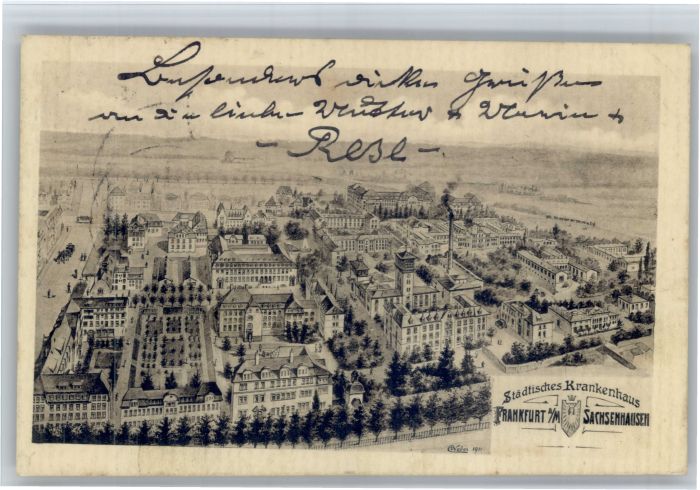 Besonders dicke Grüße
an die liebe Mutter + Marie +
- Resl -
Städtisches Krankenhaus
FRANKFURT a/M SACHSENHAUSEN
1911